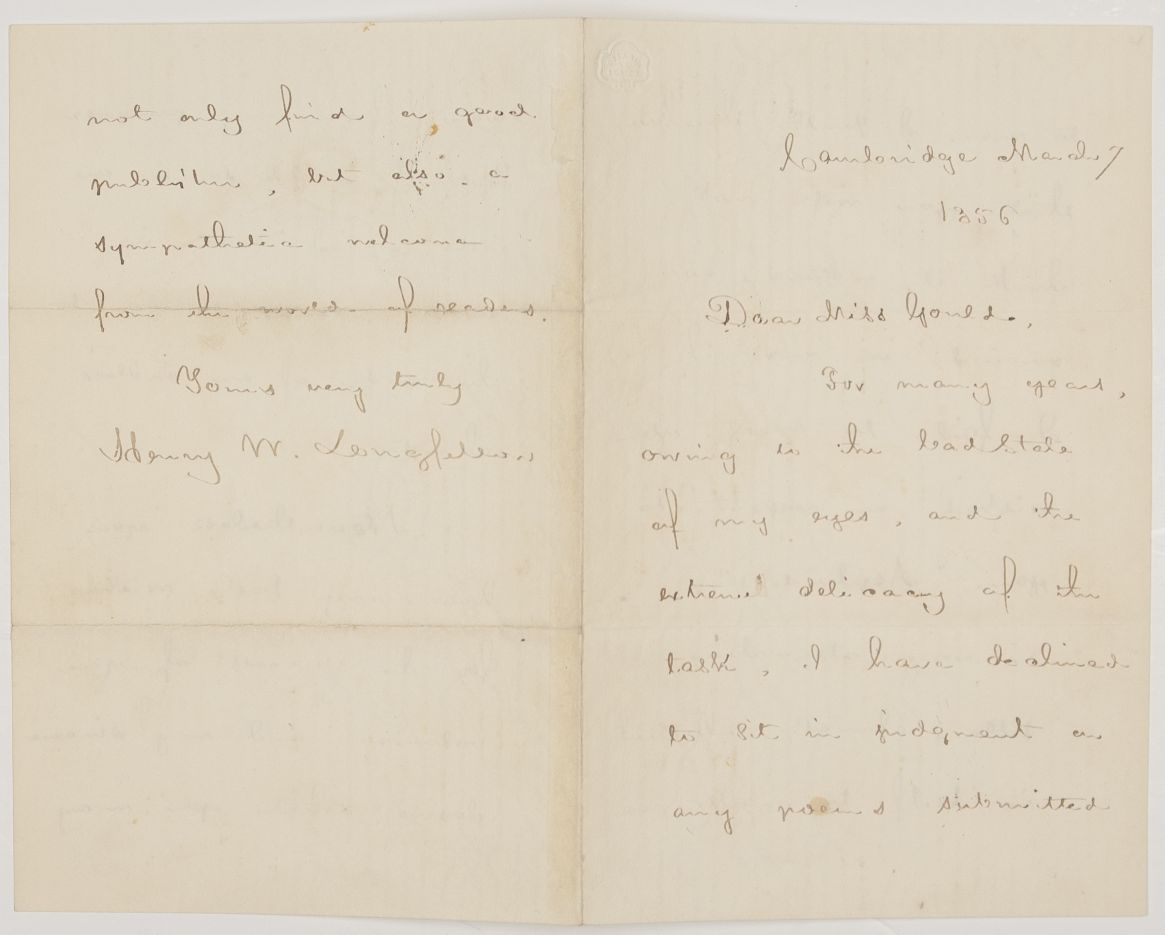 Cambridge March 7
1856
Dear Miss Gould,
For many years,
owing to the bad state
of my eyes, and the
extreme delicacy of the
task, I have declined
to sit in judgment on
any poems submitted
not only find a good
publisher, but also a
sympathetic welcome
from the world of readers.
Yours very truly
Henry W. Longfellow